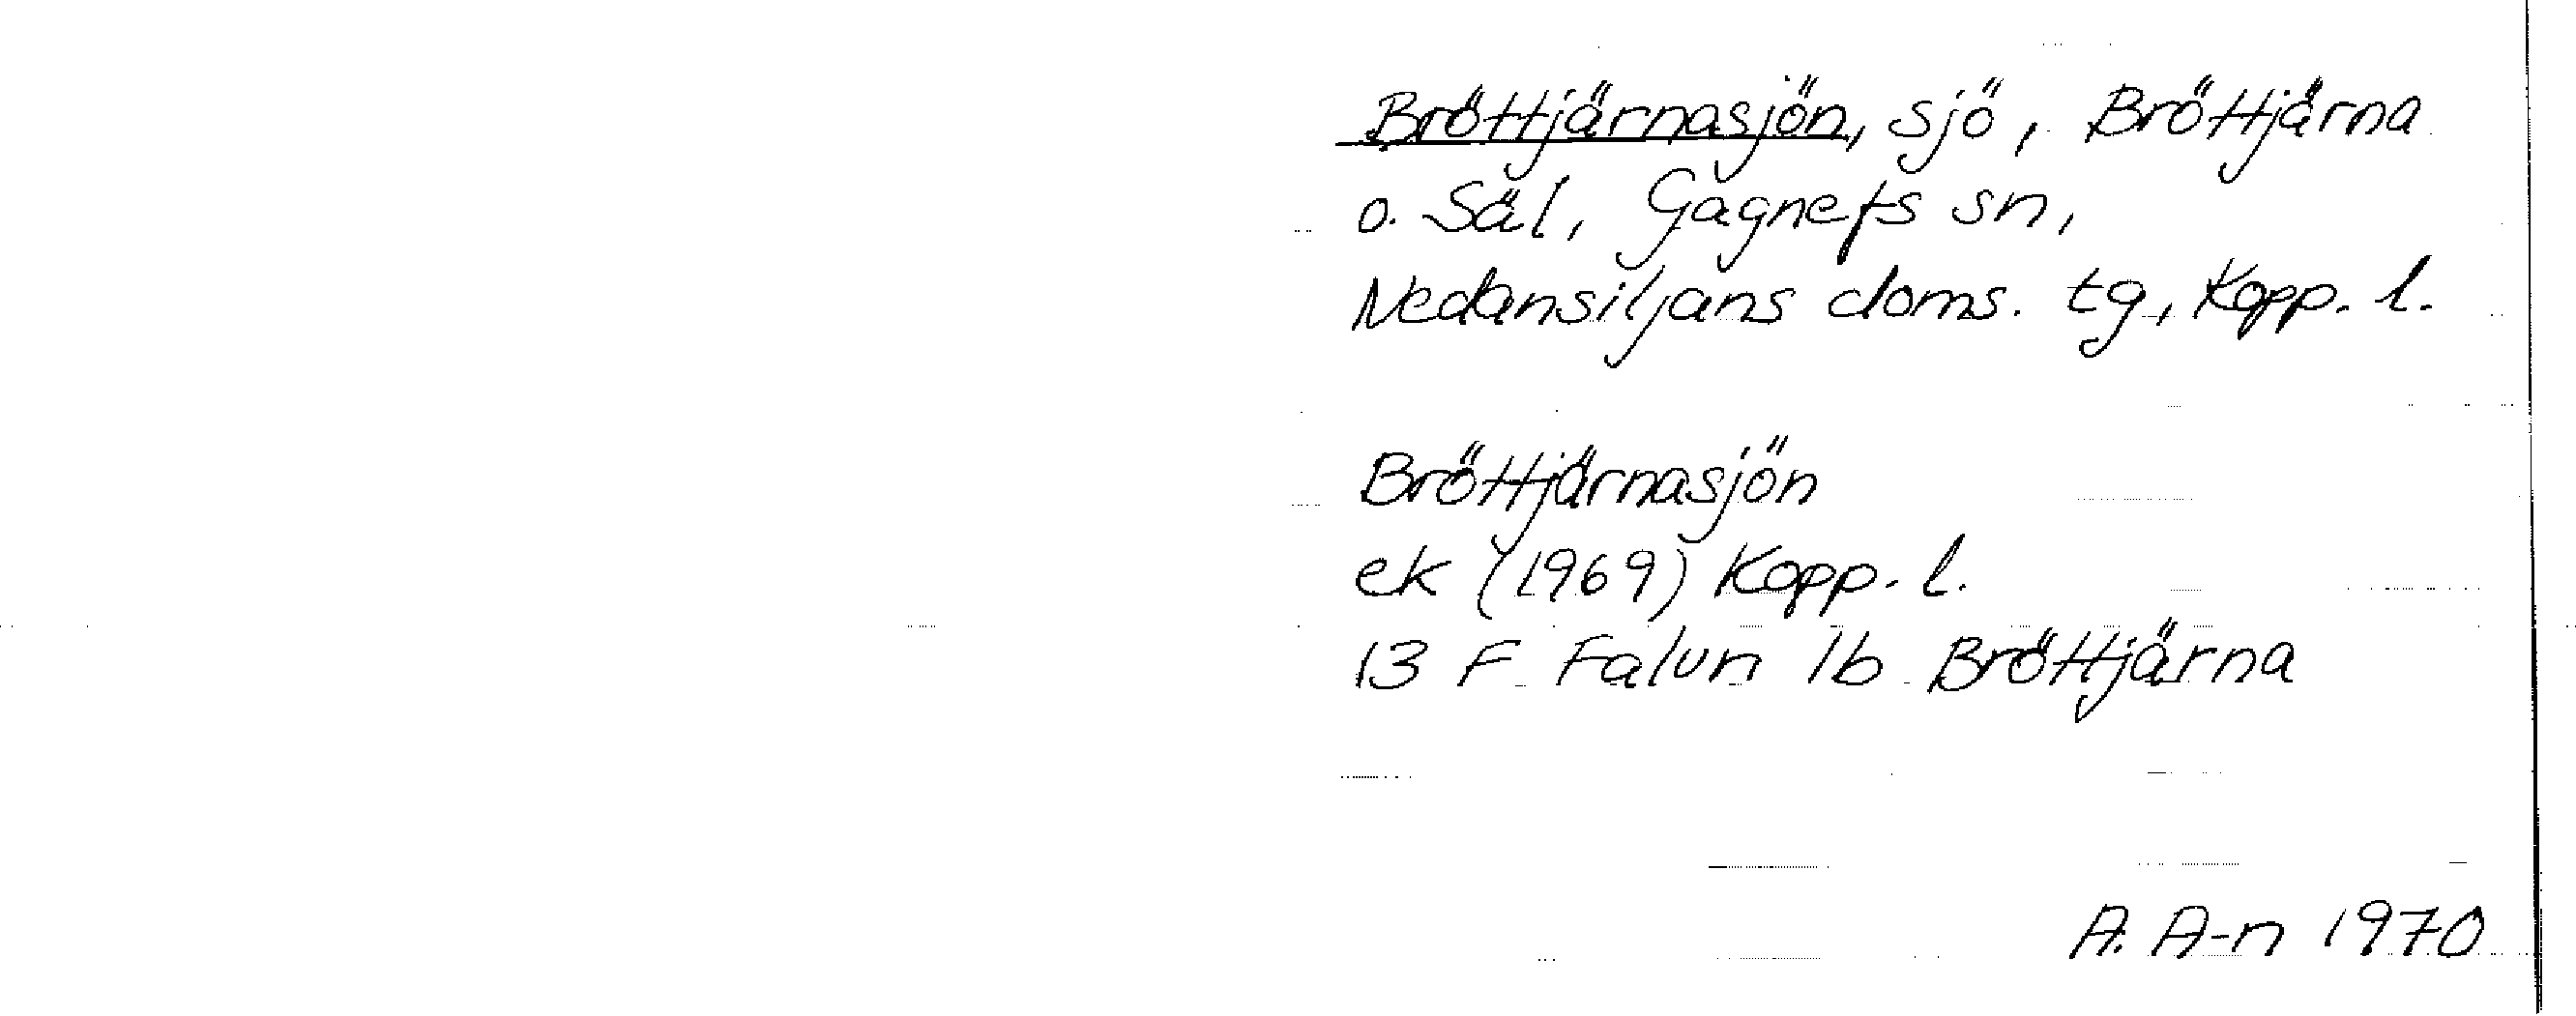 Bröttjärnasjön, sjö, Bröttjärna
o. Säl, Gagnefs sn,
Nedansiljans doms. tg, Kopp. l.
Bröttjärnasjön
ek (1969) Kopp. l.
13 F Falun 1b Bröttjärna
A. A-n 1970